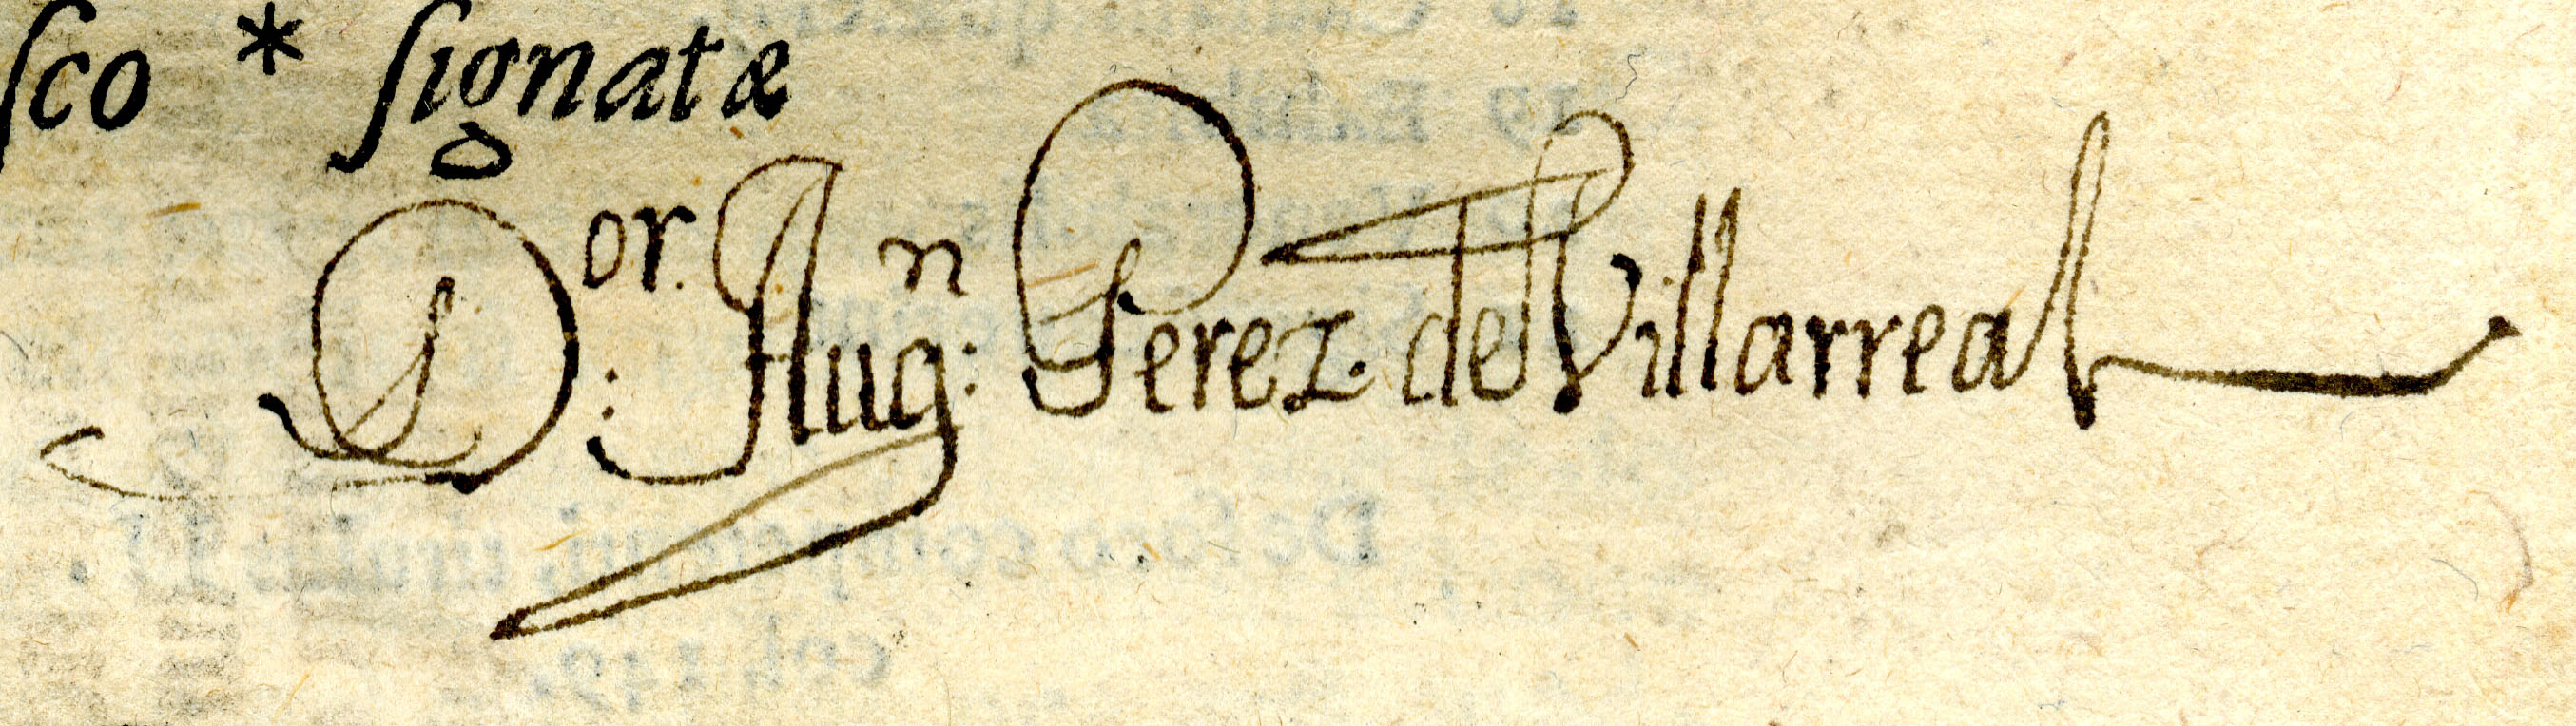 ſco * ſignatæ
Dor: Aug:n Perez. de Villarreal